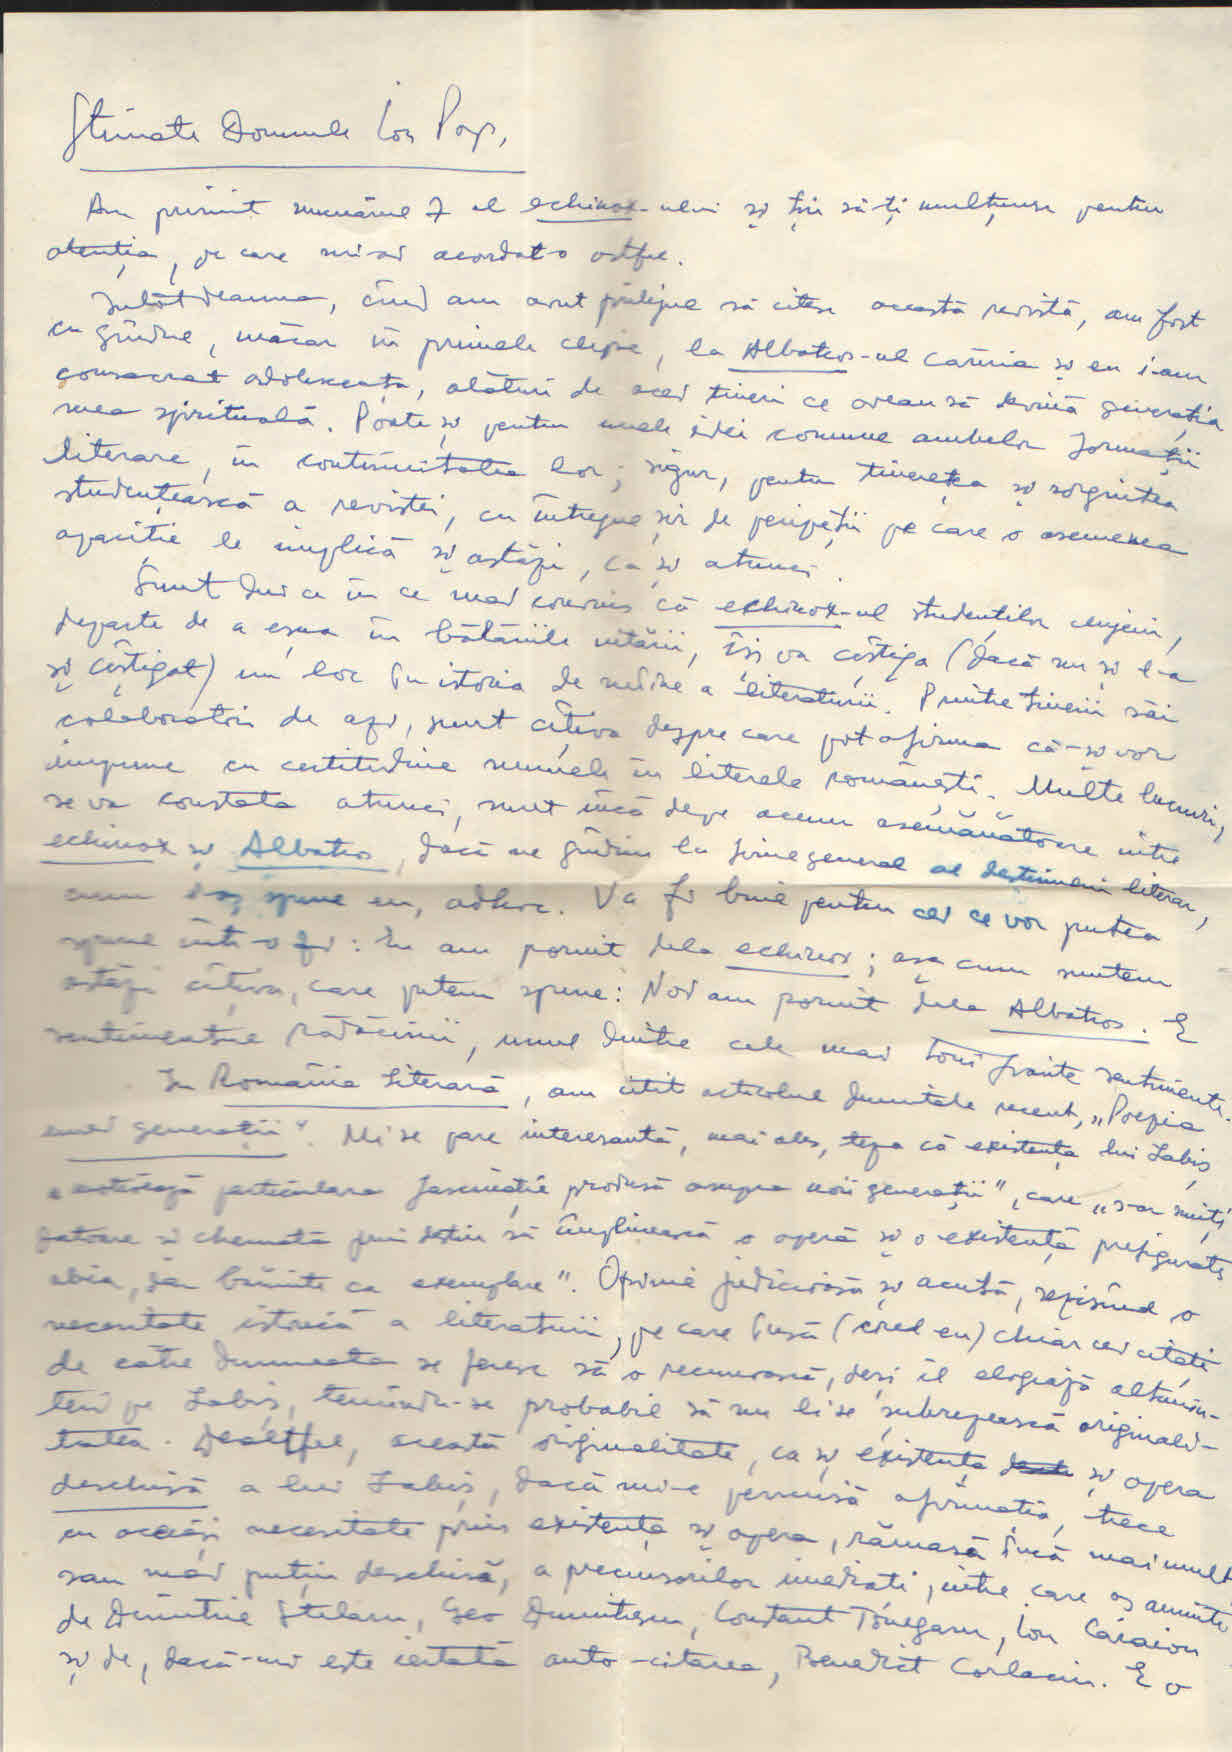 Stimate Domnule Ion Pop,
Am primit numărul 7 al echinox-ului și țin să-ți mulțumesc pentru
atenția, pe care mi-ai acordat-o astfel.
Întotdeauna, când am avut prilejul să citesc această revistă, am fost
cu gîndul, măcar în primele clipe, la Albatros-ul căruia și eu i-am
consacrat adolescența, alături de acei tineri ce aveau să devină generația
mea spirituală. Poate și pentru unele idei comune ambelor formații
literare, în continuitatea lor; sigur, pentru tinerețea și sorgintea
studențească a revistei, cu întregul șir de peripeții pe care o asemenea
apariție le implică și astăzi, ca și atunci.
Sunt din ce în ce mai convins că echinox-ul studenților clujeni,
departe de a eșua în bătăliile uitării, își va cîștiga (dacă nu și l-a
și cîștigat) un loc în istoria de mîine a literaturii. Printre tinerii săi
colaboratori de azi, sunt cîțiva despre care pot afirma că-și vor
impune cu certitudine numele în literele românești. Multe lucruri,
se va constata atunci, sunt încă de pe acum asemănătoare între
echinox și Albatros, dacă ne gîndim la firul general al destinului literar,
cum i-aș spune eu, adhoc. Va fi bine pentru cei ce vor putea
spune într-o zi: Eu am pornit dela echinox; așa cum suntem
astăzi cîțiva, care putem spune: Noi am pornit dela Albatros. E
sentimentul rădăcinii, unul dintre cele mai tonifiante sentimente.
În România literară, am citit articolul dumitale recent, „Poezia
unei generații”. Mi se pare interesantă, mai ales, teza că existența lui Labiș
particulara fascinație produsă asupra noii generații”, care „s-ar simți
datoare și chemată prin destin să împlinească o operă și o existență prefigurate
abia, dar bănuite ca exemplare”. Opinie judicioasă și acută, sezisînd o
necesitate istorică a literaturii, pe care însă (cred eu) chiar cei citați
de către dumneata se feresc să o recunoască, deși îl elogiază altmin-
teri pe Labiș, temîndu-se probabil să nu li se șubrezească originali-
tatea. Dealtfel, această originalitate, ca și existența și opera
deschisă a lui Labiș, dacă mi-e permisă afirmația, trece
cu aceeași necesitate prin existența și opera, rămasă încă mai mult
sau mai puțin deschisă, a precursorilor imediați, între care aș aminti
de Dimitrie Stelaru, Geo Dumitrescu, Constant Tonegaru, Ion Caraion
și de, dacă-mi este iertată auto-citarea, Benedict Corlaciu. E o